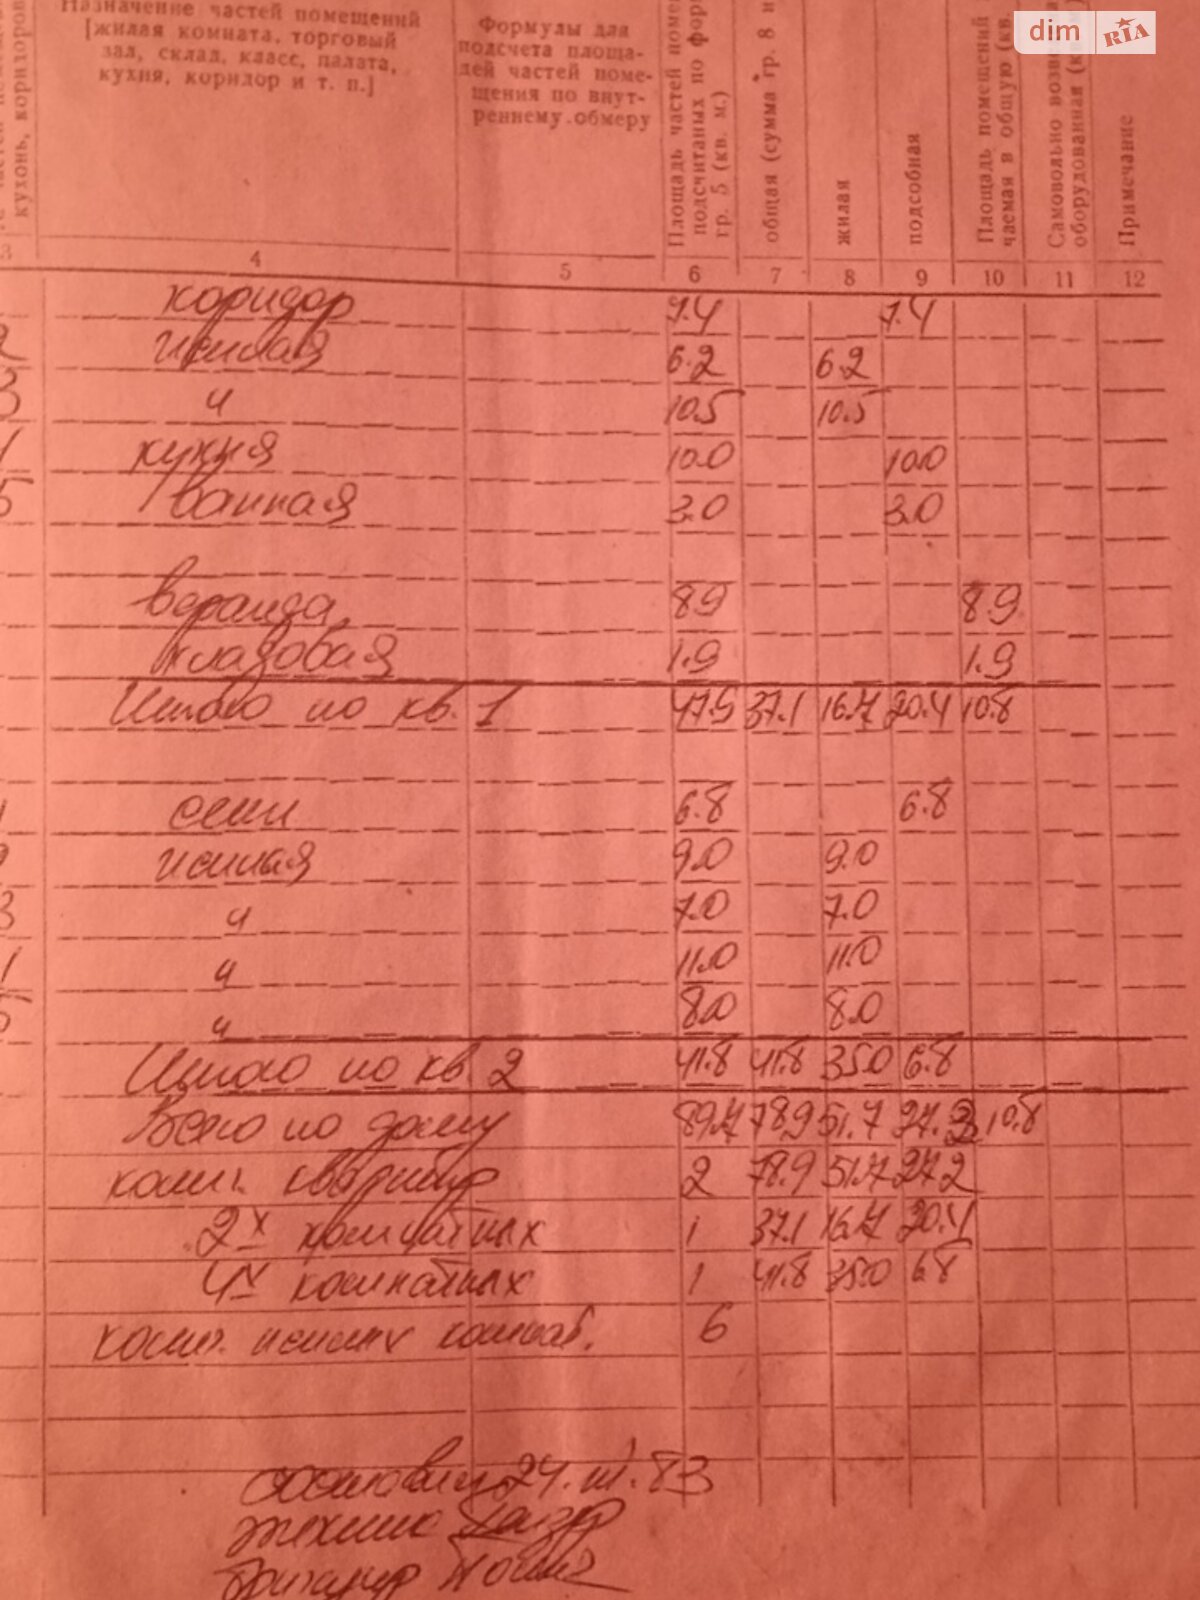 dim RIA
Назначение частей помещений
[жилая комната, торговый
зал, склад, класс, палата,
кухня, коридор и т. п.]
Формулы для
подсчета площа-
дей частей поме-
щения по внут-
реннему обмеру
Площадь частей
подсчитаных по
гр. 5 (кв. м.)
общая (сумма гр. 8 и
жилая
подсобная
Площадь помещений
чаемая в общую (кв.
Самовольно
оборудованная
Примечание
кухонь, коридоров
3 4 5 6 7 8 9 10 11 12
коридор 7.4 7.4
жилая 6.2 6.2
3 ч 10.5 10.5
кухня 10.0 10.0
5 ванная 3.0 3.0
веранда 8.9 8.9
кладовая 1.9 1.9
Итого по кв. 1 47.9 37.1 16.7 20.4 10.8
сени 6.8 6.8
жилая 9.0 9.0
3 ч 7.0 7.0
ч 11.0 11.0
5 ч 8.0 8.0
Итого по кв 2 41.8 41.8 35.0 6.8
Всего по дому 89.7 78.9 51.7 27.2 10.8
колич. квартир 2 78.9 51.7 27.2
2х комнатных 1 37.1 16.7 20.4
4х комнатных 1 41.8 35.0 6.8
колич. жилых комнат. 6
составил 24.III.83
техник
бригадир